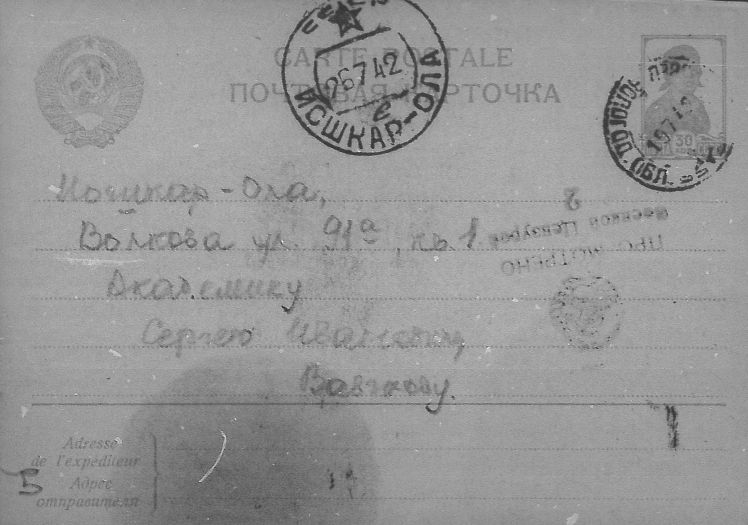 CARTE POSTALE
ПОЧТОВАЯ КАРТОЧКА
26 7 42
ЙОШКАР-ОЛА
ОБЛ.
30
Йошкар-Ола,
Волкова ул. 91а, кв. 1
ПРОСМОТРЕНО
Военной Цензурой
2
Академику
Сергею Ивановичу
Вавилову.
Adresse
de l'expéditeur
Адрес
отправителя
Б